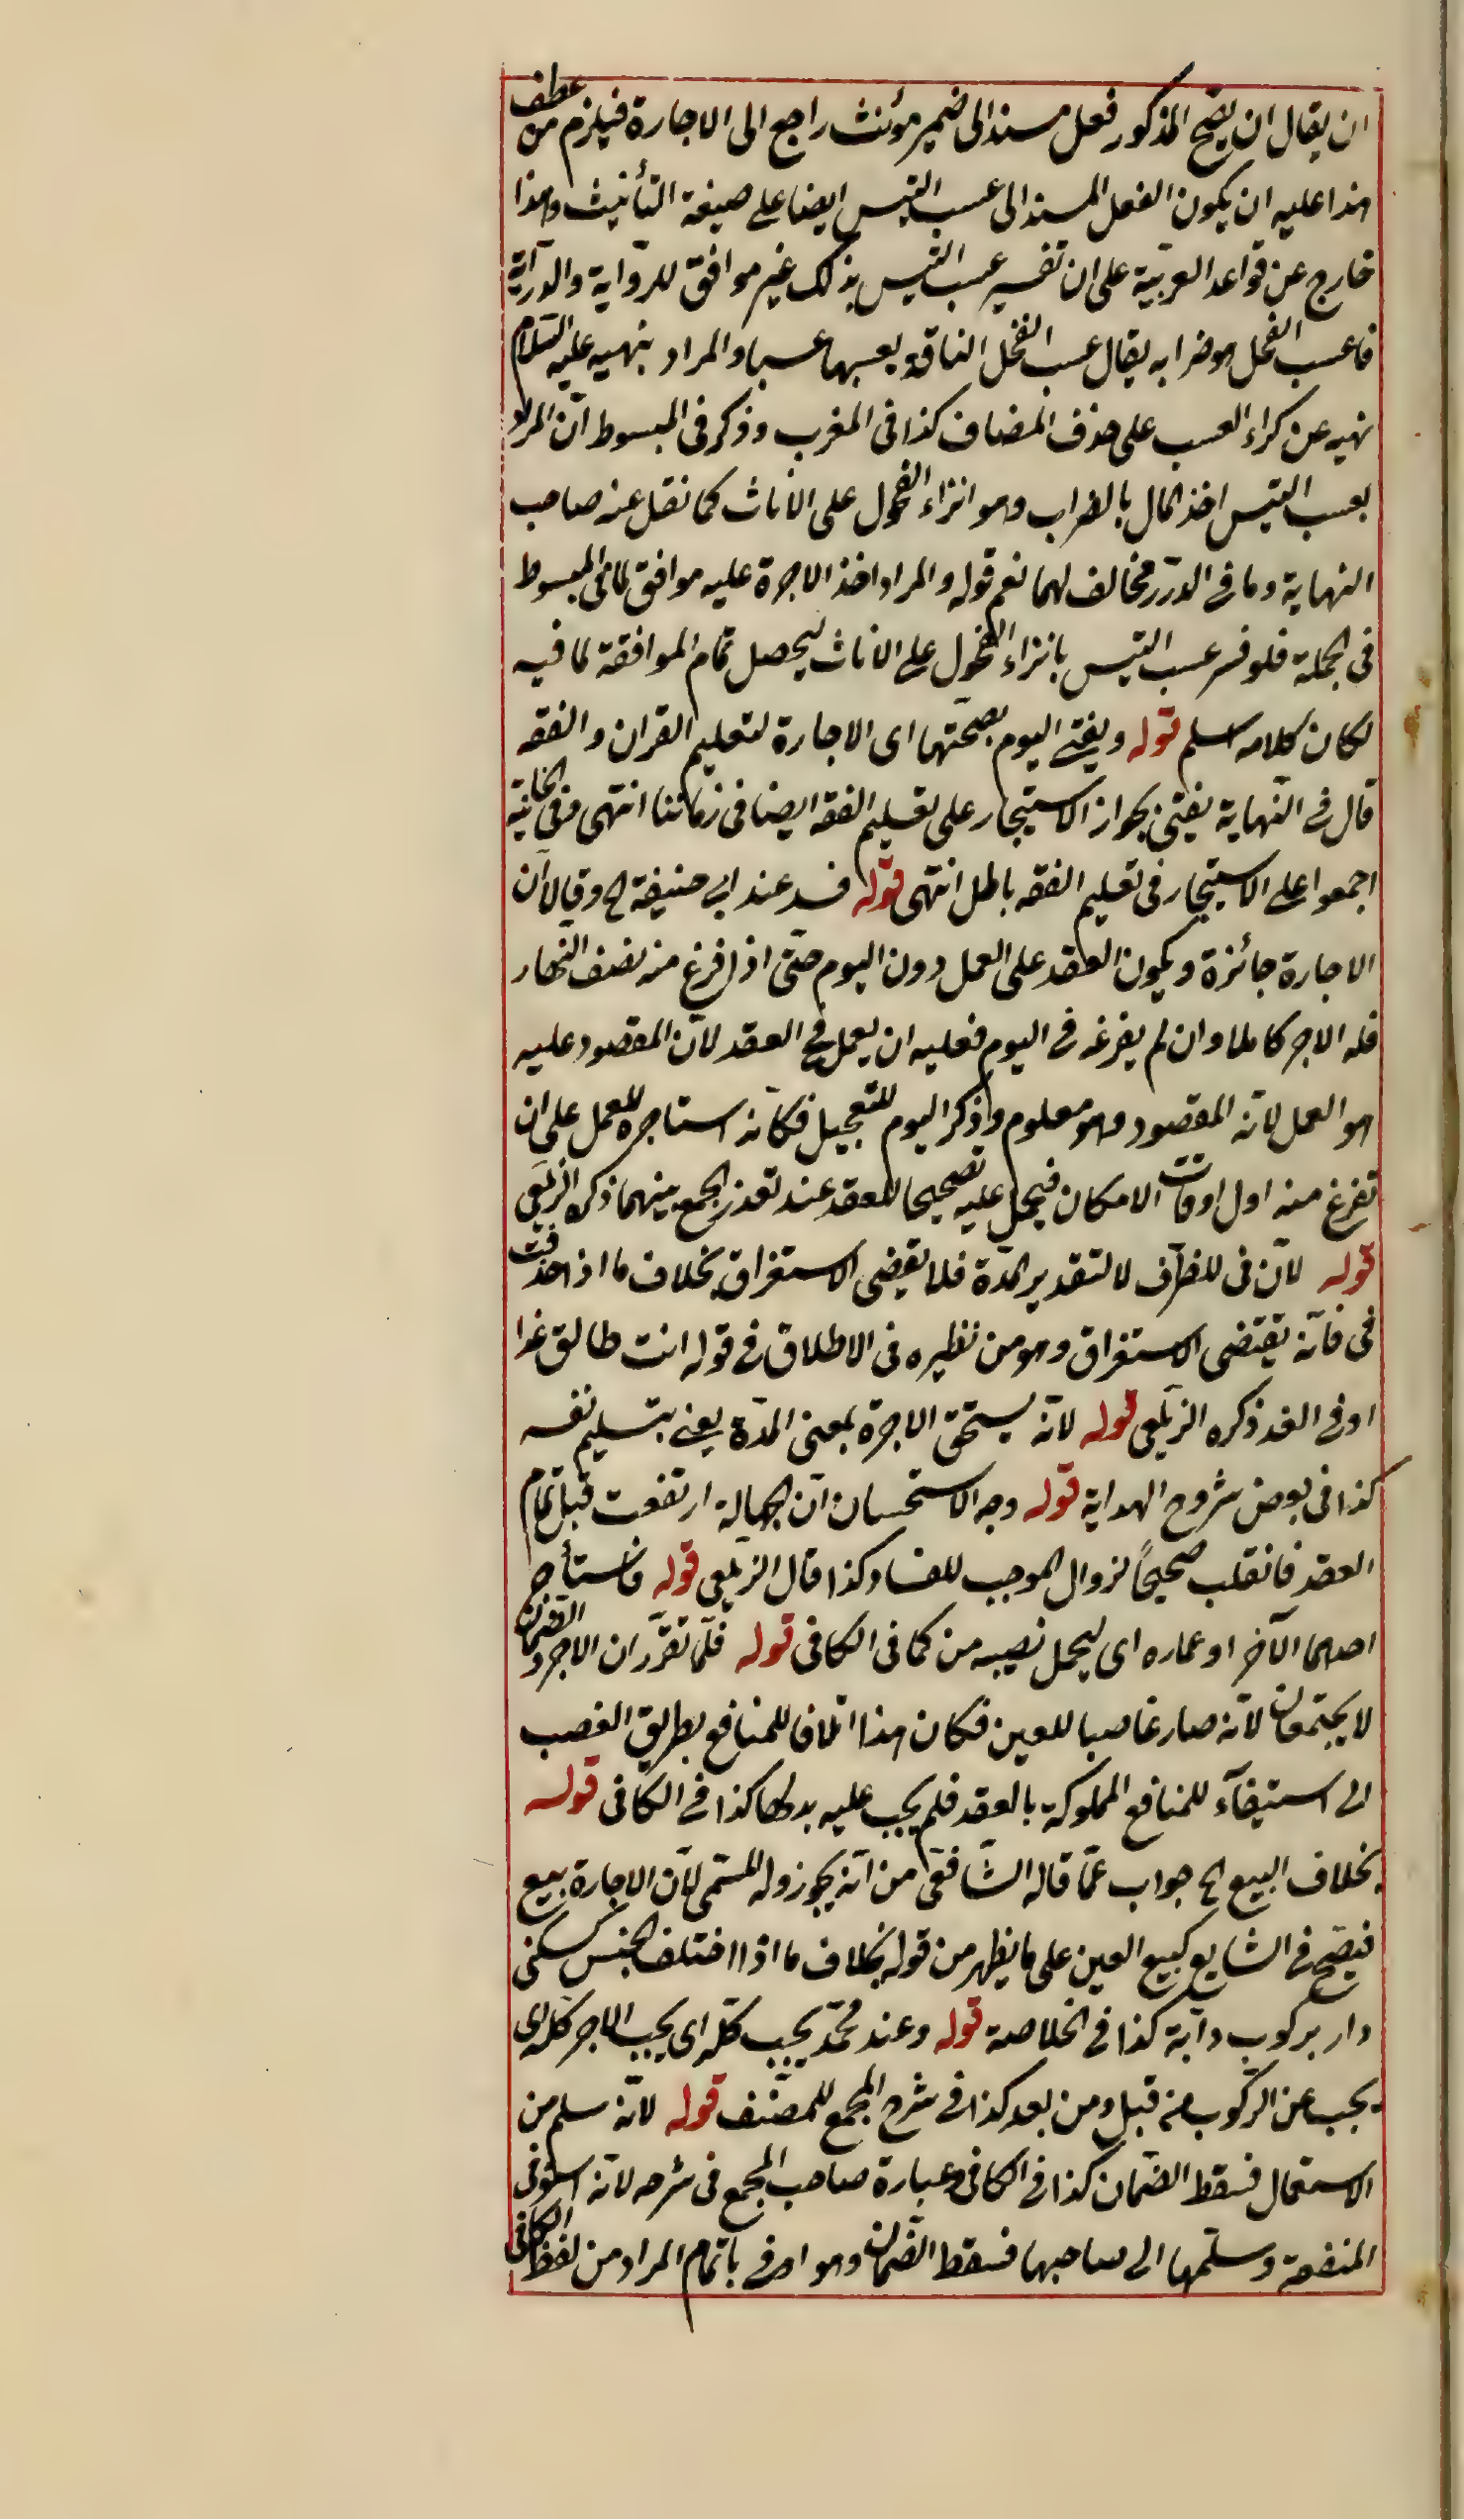 ان يقال ان يصح المذكور فعل مسند الى ضمير مؤنث راجع الى الاجارة فيلزم من عطف
هذا عليه ان يكون الفعل المسند الى عسب التيس ايضا على صيغة التأنيث وهذا
خارج عن قواعد العربيّة على ان تفسير عسب التيس بذلك غير موافق للرّواية والدّراية
فاعسب الفحل هو ضرابه يقال عسب الفحل الناقة يعسبها عسبا والمراد بنهيه عليه السّلام
نهيه عن كراء العسب على حذف المضاف كذا فى المغرب وذكر فى المبسوط انّ المراد
بعسب التيس اخذ المال بالضراب وهو انزاء الفحول على الاناث كما نقل عنه صاحب
النهاية وما فى الدرر مخالف لهما نعم قوله والمراد اخذ الاجرة عليه موافق لما فى المبسوط
فى الجملة فلو فسر عسب التيس بانزاء الفحول على الاناث ليحصل تمام الموافقة لما فيه
لكان كلامه اسلم قوله ويفتى اليوم بصحّتها اى الاجارة لتعليم القران والفقه
قال فى النّهاية يفتى بجواز الاستيجار على تعليم الفقه ايضا فى زماننا انتهى وفى الخانية
اجمعوا على الاستيجار فى تعليم الفقه باطل انتهى قوله فسد عند ابى حنيفة الخ وقالا ان
الاجارة جائزة ويكون العقد على العمل دون اليوم حتّى اذا فرغ منه نصف النّهار
فله الاجر كاملا وان لم يفرغه فى اليوم فعليه ان يعمل فى العقد لانّ المقصود عليه
هو العمل لانّه المقصود وهو معلوم وذكر اليوم للتعجيل فكانّه استاجره للعمل على ان
تفرغ منه اول اوقات الامكان فيحمل عليه تصحيحا للعقد عند تعذر الجمع بينهما ذكره الزيلعى
قوله لانّ فى للظرف لا لتقدير المدّة فلا يقتضى الاستغراق بخلاف ما اذا حذفت
فى فانّه يقتضى الاستغراق وهو من نظيره فى الاطلاق فى قوله انت طالق غدا
او فى الغد ذكره الزيلعى قوله لانّه يستحق الاجرة بمعنى المدّة يعنى بتسليم نفسه
كذا فى بعض شروح الهداية قوله وجه الاستحسان انّ الجهالة ارتفعت قبل تمام
العقد فانقلب صحيحًا لزوال الموجب للفساد كذا قال الزيلعى قوله فاستأجر
احدهما الآخر او حماره اى ليحمل نصيبه من كما فى الكافى قوله فلمّا تقرّر ان الاجر والضمان
لا يجتمعان لانّه صار غاصبا للعين فكان هذا اتلافا للمنافع بطريق الغصب
لا استيفآء للمنافع المملوكة بالعقد فلم يجب عليه بدلها كذا فى الكافى قوله
بخلاف البيع الخ جواب عمّا قاله الشّافعى من انّه يجوز وله المسمّى لانّ الاجارة بيع
فيصحّ فى الشايع كبيع العين على ما يظهر من قوله بخلاف ما اذا اختلف الجنس كسكنى
دار بركوب دابّة كذا فى الخلاصة قوله وعند محمّد يجب كلّه اى يجب الاجر كلّه اى
يجب عن الرّكوب من قبل ومن بعد كذا فى شرح المجمع للمصنّف قوله لانّه سلم من
الاستعمال فسقط الضّمان كذا فى الكافى وعبارة صاحب المجمع فى شرحه لانّه استوفى
المنفعة وسلّمها الى صاحبها فسقط الضّمان وهو اوفى باتمام المراد من لفظ الكافى